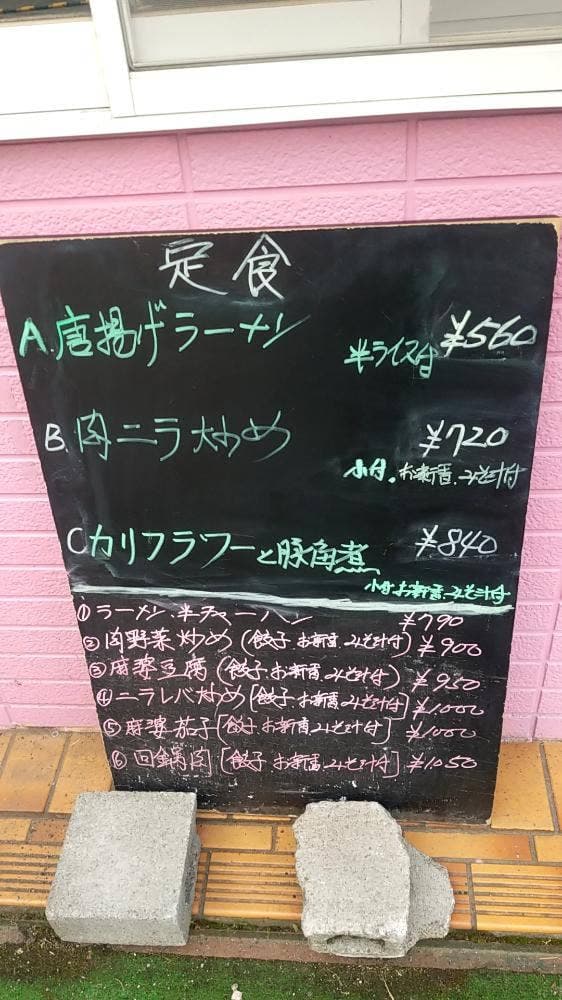 定食
A.唐揚げラーメン ¥560
半ライス付
B.肉ニラ炒め ¥720
小付.お新香.みそ汁付
Cカリフラワーと豚角煮 ¥840
小付.お新香.みそ汁付
①ラーメン.半チャーハン ¥790
②肉野菜炒め(餃子.お新香.みそ汁付) ¥900
③麻婆豆腐(餃子.お新香.みそ汁付) ¥950
④ニラレバ炒め[餃子.お新香.みそ汁付] ¥1000
⑤麻婆茄子[餃子.お新香.みそ汁付] ¥1000
⑥回鍋肉[餃子.お新香.みそ汁付] ¥1050